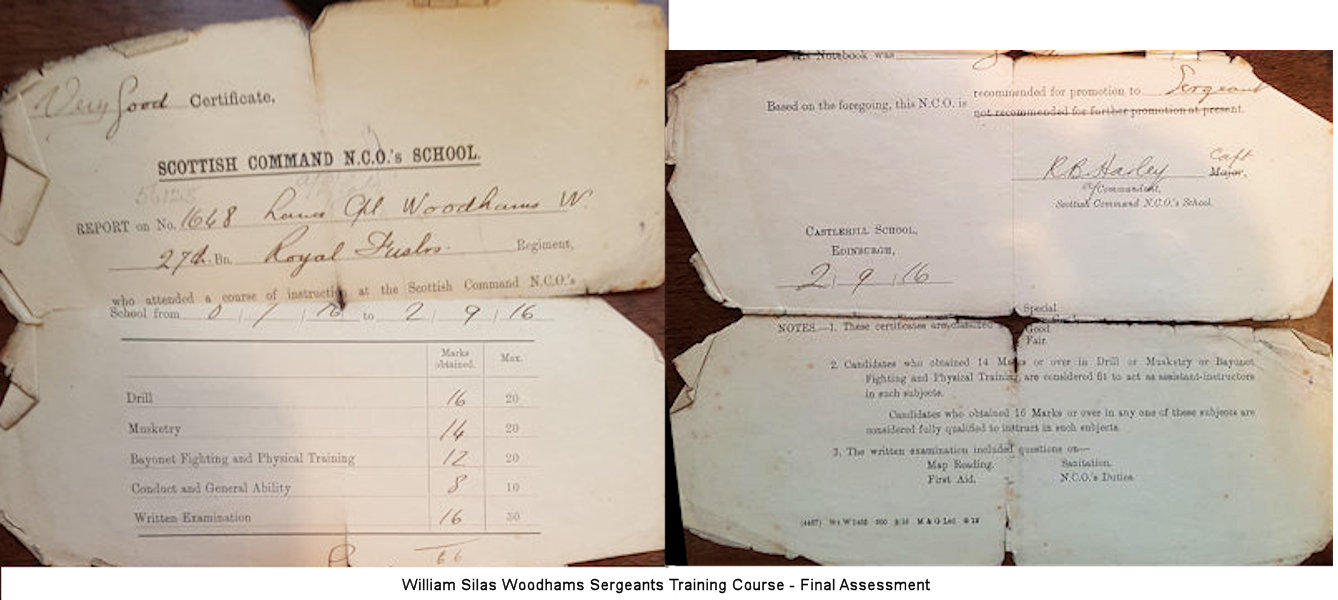 Very Good Certificate.
SCOTTISH COMMAND N.C.O.'s SCHOOL.
REPORT on No. 1648 Lance Cpl Woodhams W.
27th Bn. Royal Fuslrs. Regiment,
who attended a course of instruction at the Scottish Command N.C.O.'s
School from / / 16 to 2 / 9 / 16
Marks obtained. Max.
Drill 16 20
Musketry 14 20
Bayonet Fighting and Physical Training 12 20
Conduct and General Ability 8 10
Written Examination 16 30
66
His Notebook was
recommended for promotion to Sergeant
Based on the foregoing, this N.C.O. is
not recommended for further promotion at present.
R B Harley Capt
Major,
Commandant,
Scottish Command N.C.O.'s School.
CASTLEHILL SCHOOL,
EDINBURGH,
2 / 9 / 16
Special
NOTES.—1. These certificates are classified
Good
Fair.
2. Candidates who obtained 14 Marks or over in Drill or Musketry or Bayonet
Fighting and Physical Training, are considered fit to act as assistant-instructors
in such subjects.
Candidates who obtained 16 Marks or over in any one of these subjects are
considered fully qualified to instruct in such subjects.
3. The written examination included questions on—
Map Reading. Sanitation.
First Aid. N.C.O.'s Duties.
William Silas Woodhams Sergeants Training Course - Final Assessment